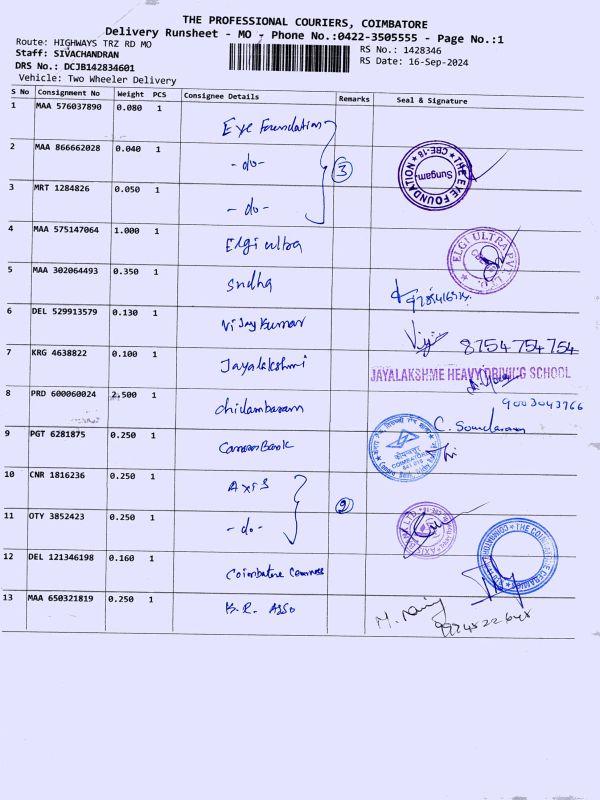 THE PROFESSIONAL COURIERS, COIMBATORE
Delivery Runsheet - MO - Phone No.:0422-3505555 - Page No.:1
Route: HIGHWAYS TRZ RD MO
RS No.: 1428346
Staff: SIVACHANDRAN
RS Date: 16-Sep-2024
DRS No.: DCJB142834601
Vehicle: Two Wheeler Delivery
S No Consignment No Weight PCS Consignee Details Remarks Seal & Signature
1 MAA 576037890 0.080 1 Eye Foundation
2 MAA 866662028 0.040 1 -do- 3 THE EYE FOUNDATION Sungam CBE-18
3 MRT 1284826 0.050 1 -do-
4 MAA 575147064 1.000 1 Elgi ultra ELGI ULTRA PVT
5 MAA 302064493 0.350 1 Sudha
6 DEL 529913579 0.130 1 Vijaykumar 8754 754 754
7 KRG 4638822 0.100 1 Jayalakshmi JAYALAKSHME HEAVY DRIVING SCHOOL
8 PRD 600060024 2.500 1 chidambaram 9003043766
C. Soundaram
9 PGT 6281875 0.250 1 Canara Bank COIMBATORE
10 CNR 1816236 0.250 1 AXIS
11 OTY 3852423 0.250 1 -do- AXIS
12 DEL 121346198 0.160 1 Coimbatore THE COIMBATORE
13 MAA 650321819 0.250 1 K.R. Asso